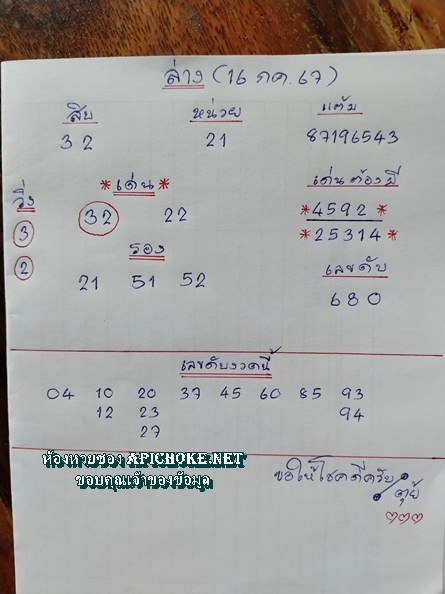 ล่าง (16 กค. 67)
สิบ หน่วย แต้ม
32 21 87196543
วิ่ง *เด่น* เด่นต้องมี
3 32 22 *4592*
2 รอง *25314*
21 51 52 เลขดับ
680
เลขดับงวดนี้
04 10 20 37 45 60 85 93
12 23 94
27
ห้องหวยซอง APICHOKE.NET
ขอบคุณเจ้าของข้อมูล
ขอให้โชคดีครับ
ตุ้ย